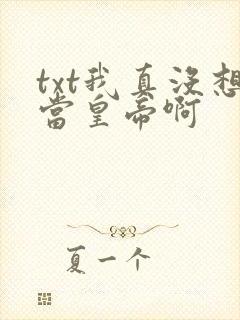 txt我真没想
當皇帝啊
夏一个